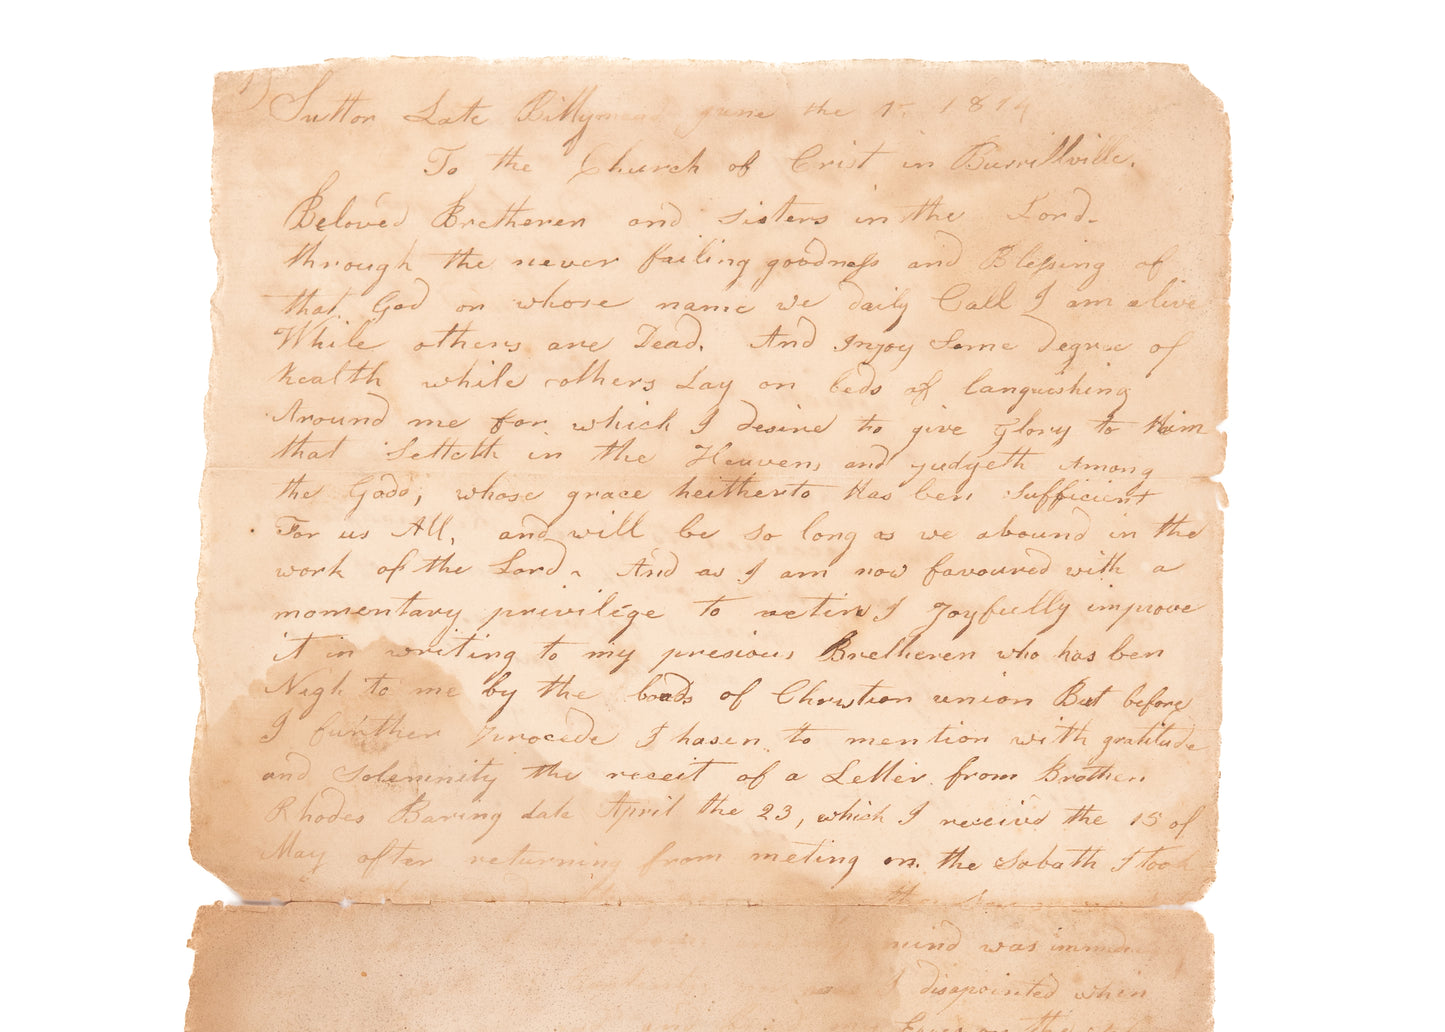 1)
Sutton Late Billymead june the 1st 1814
To the Church of Crist in Burrillville.
Beloved Bretheren and sisters in the Lord.
through the never failing goodness and Blessing of
that God on whose name we daily Call I am alive
While others are Dead. And Injoy Some degree of
health while others Lay on beds of languishing
Around me for which I desire to give glory to Him
that Setteth in the Heavens and judgeth Among
the Gods; whose grace heitherto has ben Sufficient
For us All, and will be so long as we abound in the
work of the Lord. And as I am now favoured with a
momentary privilege to I Joyfully improve
it in writing to my presious Bretheren who has ben
Nigh to me by the bonds of Christian union But before
I further procede I hasen to mention with gratitude
and Solemnity the receit of a Letter from Brother
Rhodes Baring date April the 23, which I received the 15 of
May after returning from meting on the Sabath I took
the
mind was
I disapointed when
on the